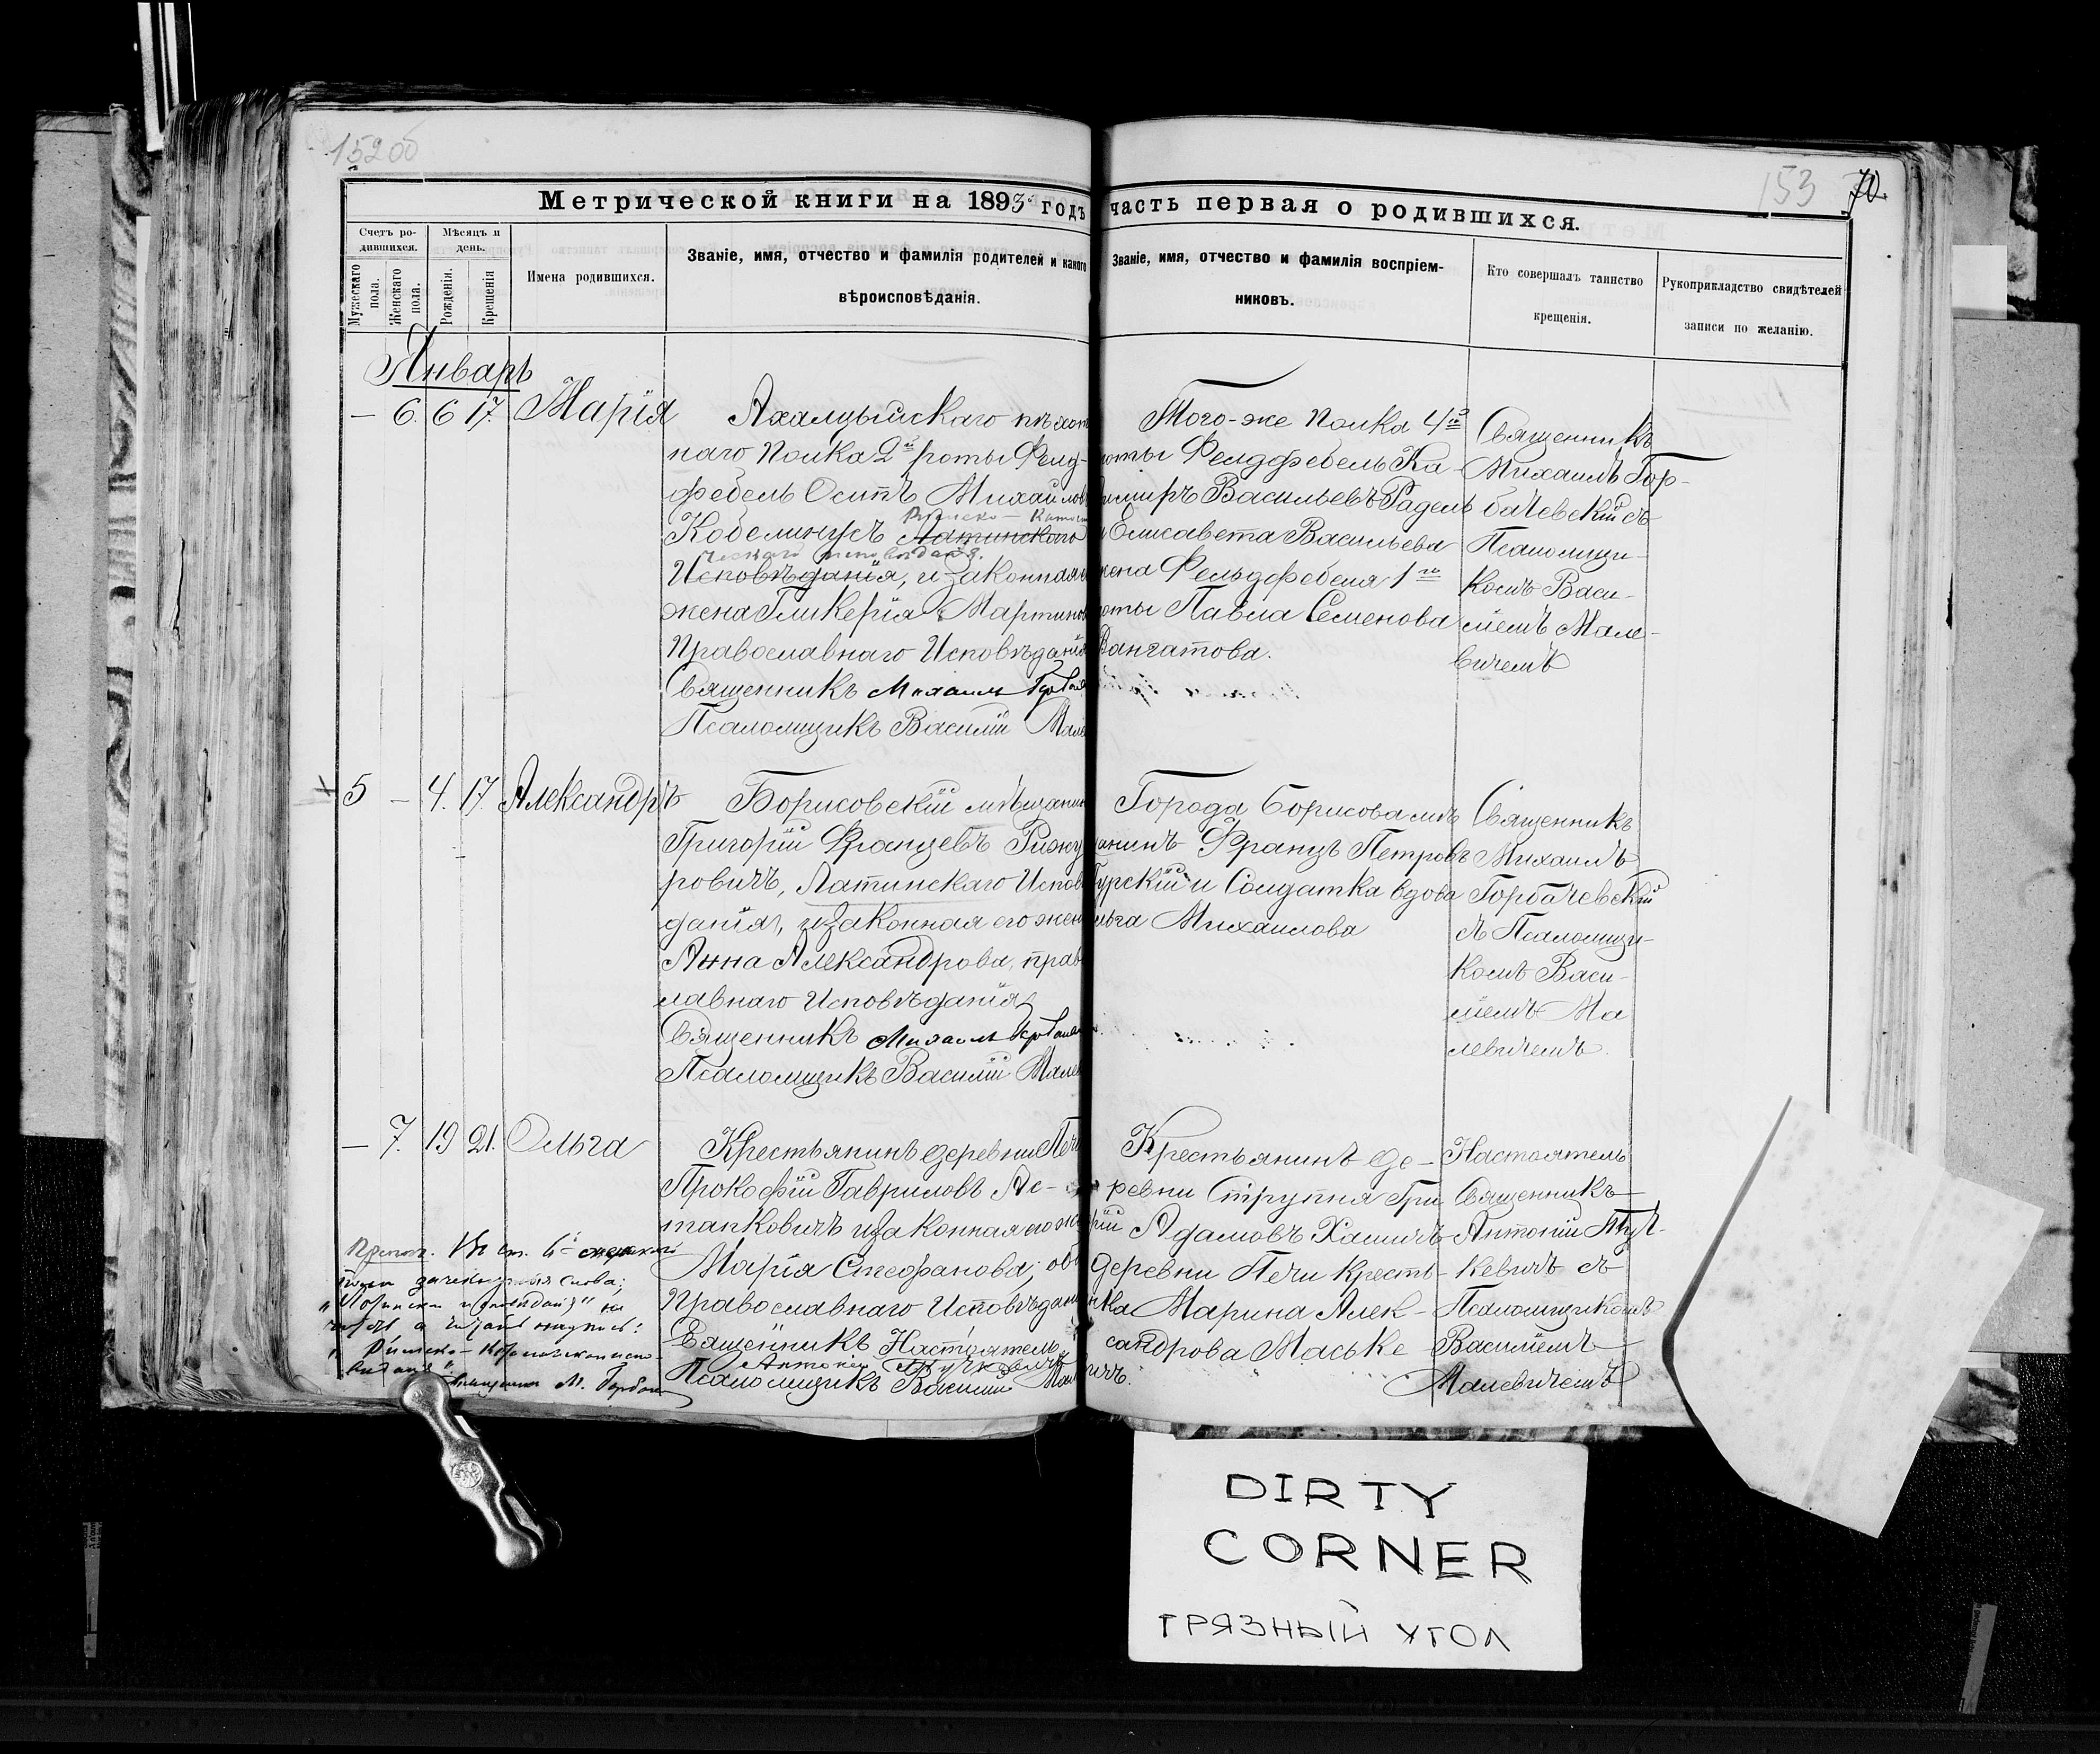 152об
153 70.
Метрической книги на 1893 годъ часть первая о родившихся.
Счетъ родившихся.
Мужескаго пола.
Женскаго пола.
Мѣсяцъ и день.
Рожденія.
Крещенія
Имена родившихся.
Званіе, имя, отчество и фамилія родителей и какого
вѣроисповѣданія.
Званіе, имя, отчество и фамилія воспріем-
никовъ.
Кто совершалъ таинство
крещенія.
Рукоприкладство свидѣтелей
записи по желанію.
Январь
— 6. 6 17. Марія
Ахалцыйскаго пѣхот
наго Полка 2й роты Фелд-
фебель Осипъ Михайлов
Римско-Катол
Кобелинусъ Латинскаго
ческаго исповѣданія.
Исповѣданія, и законная
жена Гликерія Мартинов
Православнаго Исповѣданія
Священникъ Михаилъ Горбач
Псаломщикъ Василій Мале
Того-же Полка 4й
роты Фелдфебель Ка-
зимиръ Васильевъ Радель
и Елисавета Васильева
жена Фельдфебеля 1й
роты Павла Семенова
Вангатова.
Священникъ
Михаилъ Гор-
бачевскій съ
Псаломщи-
комъ Васи-
ліемъ Мале-
вичемъ
5 — 4. 17. Александръ
Борисовскій мѣщанин
Григорій Францевъ
ровичъ, Латинскаго Испов
данія, и законная его жен
Анна Александрова, прав
лавнаго Исповѣданія
Священникъ Михаилъ Горбачев
Псаломщикъ Василій Мале
Города Борисова мѣ
щанинъ Францъ Петровъ
Турскій и Солдатка вдова
льга Михаилова
Священникъ
Михаилъ
Горбачевскій
съ Псаломщи-
комъ Васи-
ліемъ Ма
левичемъ
— 7. 19 21. Ольга
Крестьянинъ деревни Печи
Прокофій Гавриловъ Ас-
танковичъ и законная его же
Марія Стефанова, об
Православнаго Исповѣдан
Священникъ Настоятель
Антоній
Псаломщикъ Василій Мал
Крестьянинъ де-
ревни Струпня Гри
рій Адамовъ Хамичъ
деревни Печи кресть-
нка Марина Алек-
сандрова Маське
ичъ.
Настоятель
Священникъ
Антоній
кевичъ съ
Псаломщикомъ
Василіемъ
Малевичемъ
слова;
"
Римско-
М. Горбач
DIRTY
CORNER
ГРЯЗНЫЙ УГОЛ